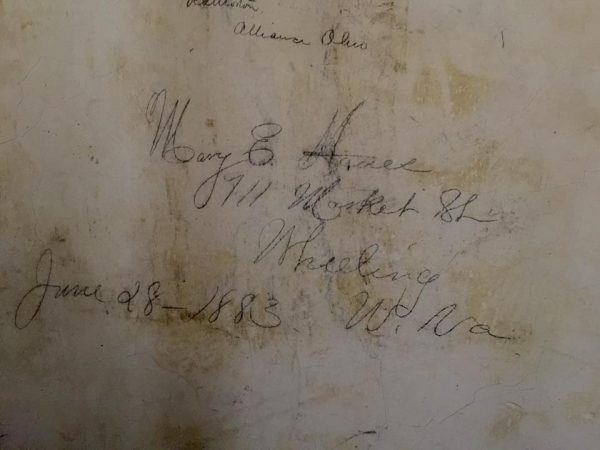 Alliance Ohio
Mary E.
911 Market St.
Wheeling
June 28 - 1883 W. Va.